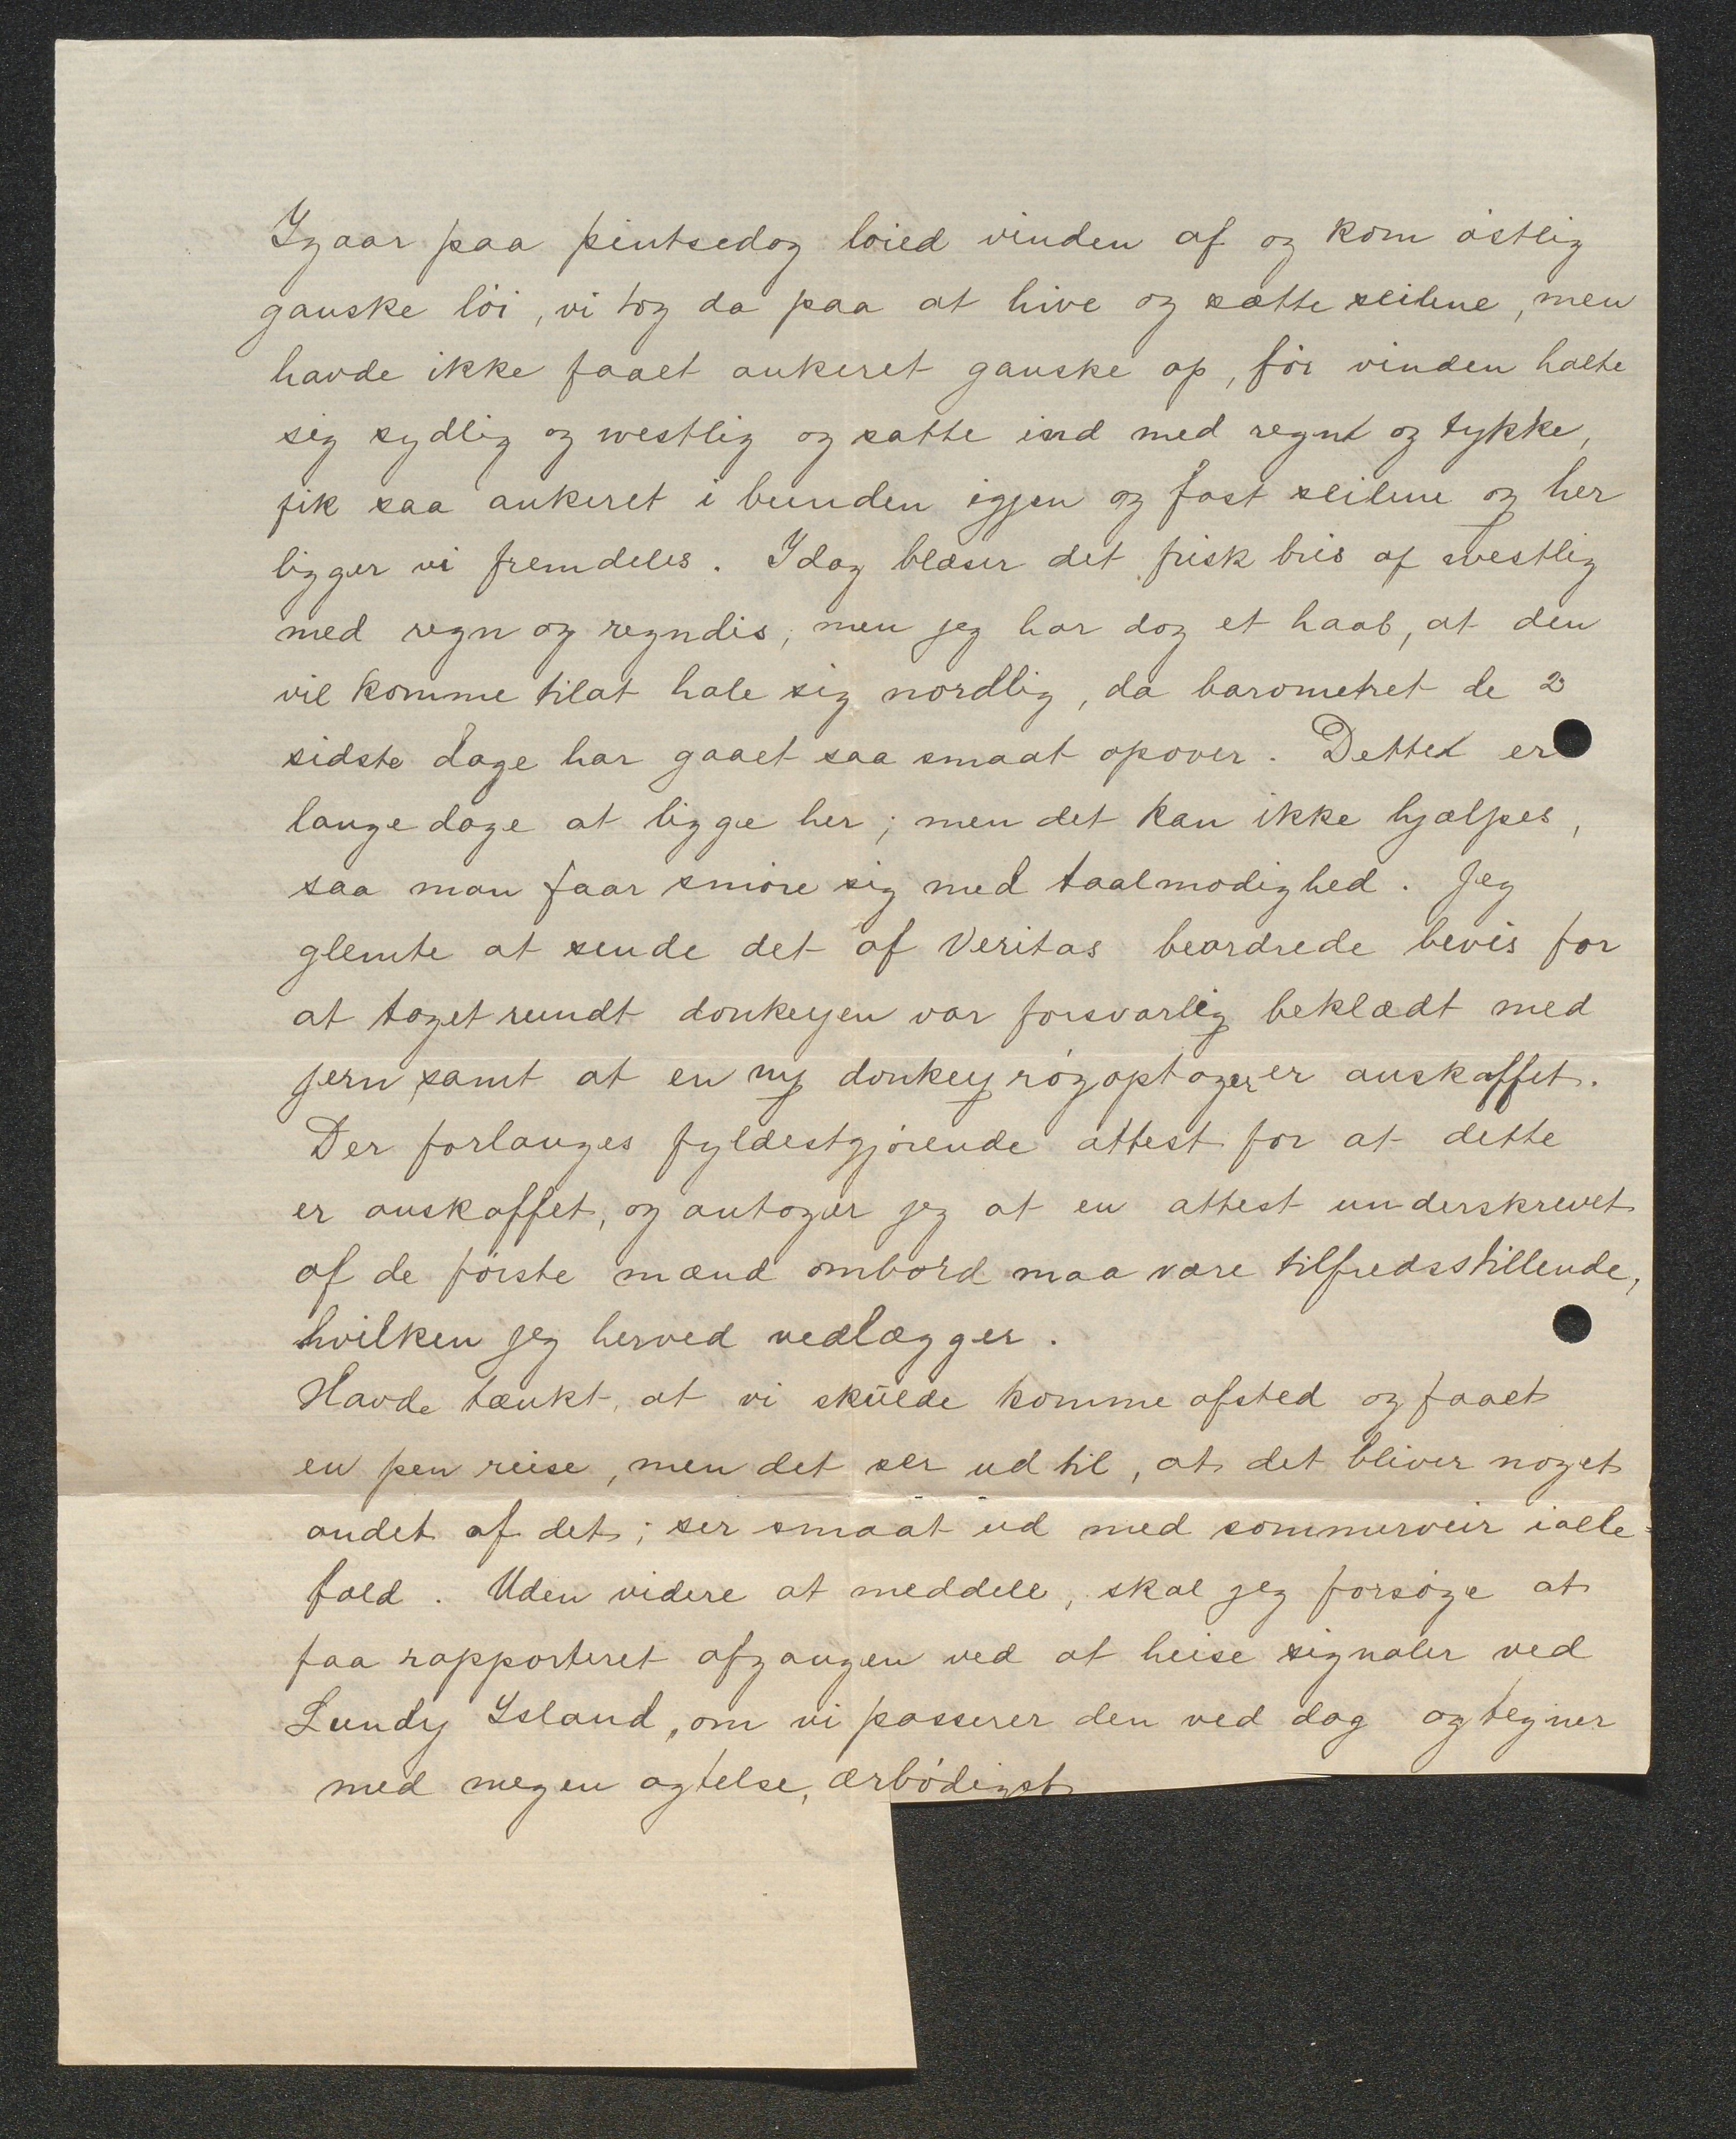 Igaar paa pintsedag løied vinden af og kom østlig
ganske løi, vi tog da paa at hive og sætte seilene, men
havde ikke faaet ankeret ganske op, før vinden halte
sig sydlig og westlig og satte ind med regnt og tykke,
fik saa ankeret i bunden igjen og fast seilene og her
ligger vi fremdeles. Idag blæser det frisk bris af westlig
med regn og regndis, men jeg har dog et haab, at den
vil komme tilat hale sig nordlig, da barometret de 2
sidste dage har gaaet saa smaat opover. Dettet er
lange dage at ligge her; men det kan ikke hjælpes,
saa man faar smøre sig med taalmodighed. Jeg
glemte at sende det af Veritas beordrede bevis for
at taget rundt donkeyen var forsvarlig beklædt med
jern samt at en ny donkey røgoptager er anskaffet.
Der forlanges fyldestgjørende attest for at dette
er anskaffet, og antager jeg at en attest underskrevet
af de første mænd ombord maa være tilfredsstillende,
hvilken jeg herved vedlægger.
Havde tænkt, at vi skulde komme afsted og faaet
en pen reise, men det ser ud til, at det bliver noget
andet af det; ser smaat ud med sommerveir ialle=
fald. Uden videre at meddele, skal jeg forsøge at
faa rapporteret afgangen ved at heise signaler ved
Lundy Island, om vi passerer den ved dag og tegner
med megen agtelse, ærbødigst